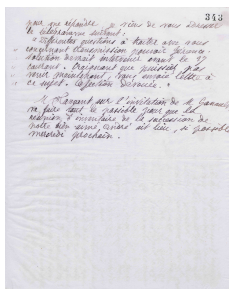 343
pour me répondre. Je viens de vous adresser
le télégramme suivant :
" Différentes questions à traiter avec vous
concernant transmission pouvoir gérance
solution devrait intervenir avant le 17
courant. Craignant que puissiez pas
venir maintenant, vous envoie lettre à
ce sujet. Affection dévouée. "
M. Margent sur l'invitation de M.
va faire tout le possible pour que la
réunion d'inventaire de la succession de
notre bien aimé André ait lieu, si possible
mercredi prochain.